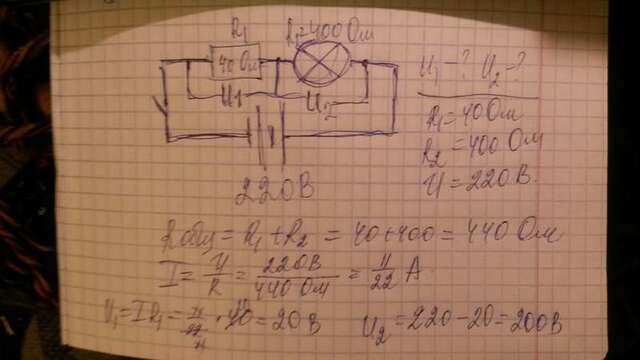 R₁ R₂=400 Ом
40 Ом
U₁ U₂
220В
U₁ - ? U₂ - ?
R₁ = 40 Ом
R₂ = 400 Ом
U = 220 В.
Rобщ = R₁ + R₂ = 40 + 400 = 440 Ом
I = U/R = 220В/440 Ом = 11/22 А
U₁ = I R₁ = 11/22 · 40 = 20 В U₂ = 220 - 20 = 200В